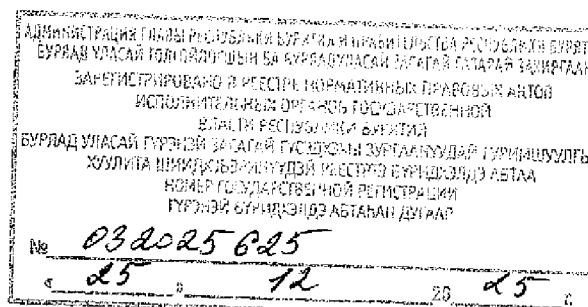 АДМИНИСТРАЦИЯ ГЛАВЫ РЕСПУБЛИКИ БУРЯТИЯ И ПРАВИТЕЛЬСТВА РЕСПУБЛИКИ БУРЯТ
БУРЯАД УЛАСАЙ БА БУРЯАД УЛАСАЙ ЗАСАГАЙ ГАЗАРАЙ ЗАХИРГААН
ЗАРЕГИСТРИРОВАНО В РЕЕСТРЕ НОРМАТИВНЫХ ПРАВОВЫХ АКТОВ
ИСПОЛНИТЕЛЬНЫХ ОРГАНОВ ГОСУДАРСТВЕННОЙ
ВЛАСТИ РЕСПУБЛИКИ БУРЯТИЯ
БУРЯАД УЛАСАЙ ГҮРЭНЭЙ ЗАСАГАЙ
ХУУЛИТА БҮРИДХЭЛДЭ АБТАА
НОМЕР ГОСУДАРСТВЕННОЙ РЕГИСТРАЦИИ
ГҮРЭНЭЙ БҮРИДХЭЛДЭ АБТАҺАН ДУГААР
№ 032025625
« 25 » 12 20 25 г.